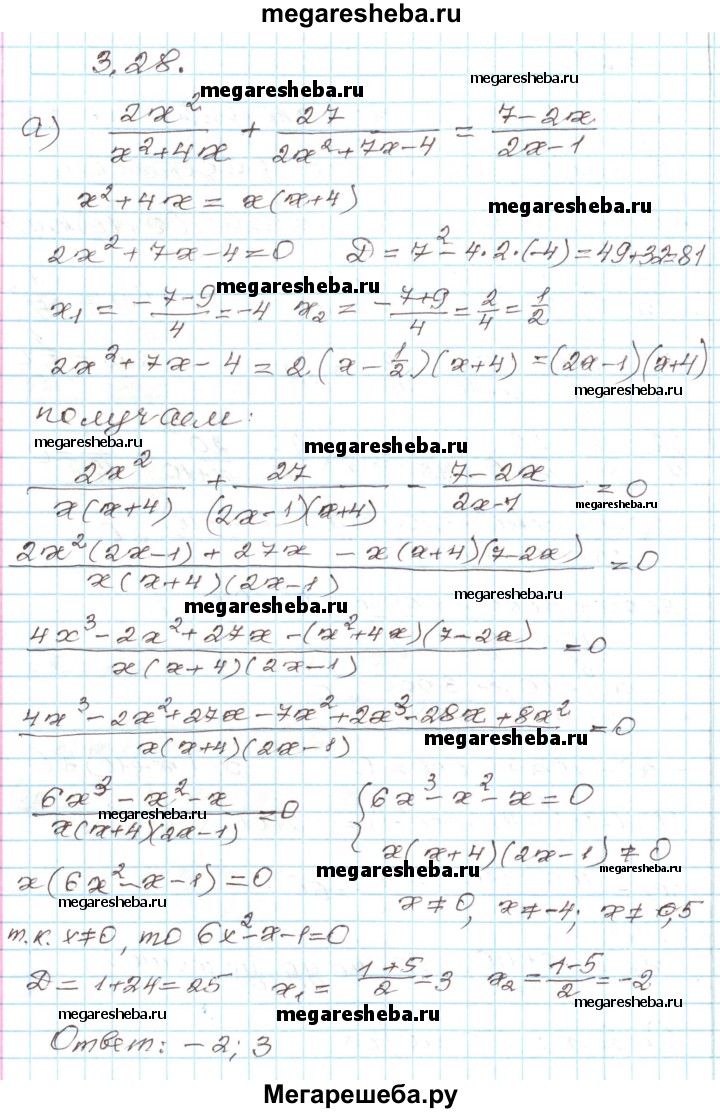 megaresheba.ru
3.28.
megaresheba.ru
megaresheba.ru
а) 2x²/(x²+4x) + 27/(2x²+7x-4) = (7-2x)/(2x-1)
x²+4x = x(x+4)
megaresheba.ru
2x²+7x-4=0 D = 7²-4·2·(-4)=49+32=81
megaresheba.ru
x₁ = (-7-9)/4 = -4 x₂ = (-7+9)/4 = 2/4 = 1/2
2x²+7x-4 = 2(x-1/2)(x+4) = (2x-1)(x+4)
megaresheba.ru
получаем:
megaresheba.ru
megaresheba.ru
megaresheba.ru
2x²/(x(x+4)) + 27/((2x-1)(x+4)) - (7-2x)/(2x-1) = 0
megaresheba.ru
(2x²(2x-1) + 27x - x(x+4)(7-2x))/(x(x+4)(2x-1)) = 0
megaresheba.ru
megaresheba.ru
(4x³-2x²+27x-(x²+4x)(7-2x))/(x(x+4)(2x-1)) = 0
(4x³-2x²+27x-7x²+2x³-28x+8x²)/(x(x+4)(2x-1)) = 0
megaresheba.ru
(6x³-x²-x)/(x(x+4)(2x-1)) = 0 { 6x³-x²-x=0
megaresheba.ru
x(x+4)(2x-1) ≠ 0
x(6x²-x-1)=0
megaresheba.ru
megaresheba.ru
megaresheba.ru
x≠0, x≠-4; x≠0,5
т.к. x≠0, то 6x²-x-1=0
megaresheba.ru
D = 1+24=25 x₁ = (1+5)/2 = 3 x₂ = (1-5)/2 = -2
megaresheba.ru
megaresheba.ru
megaresheba.ru
Ответ: -2; 3
megaresheba.ru
Мегарешеба.ру